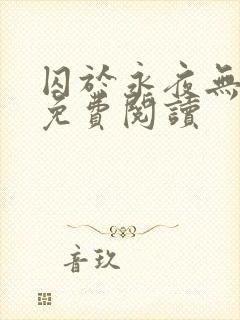 囚於永夜無
免費閱讀
音玖